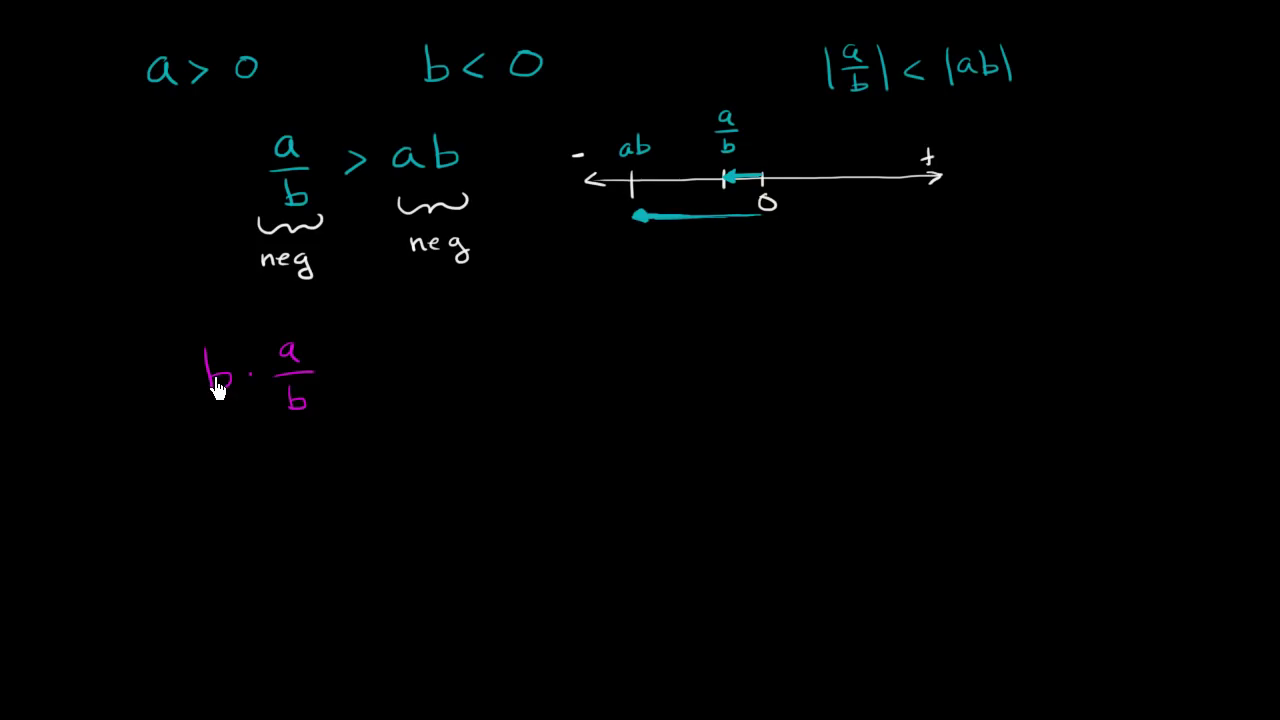 a > 0 b < 0 |a/b| < |ab|
a/b > ab
neg neg
- ab a/b 0 +
b · a/b